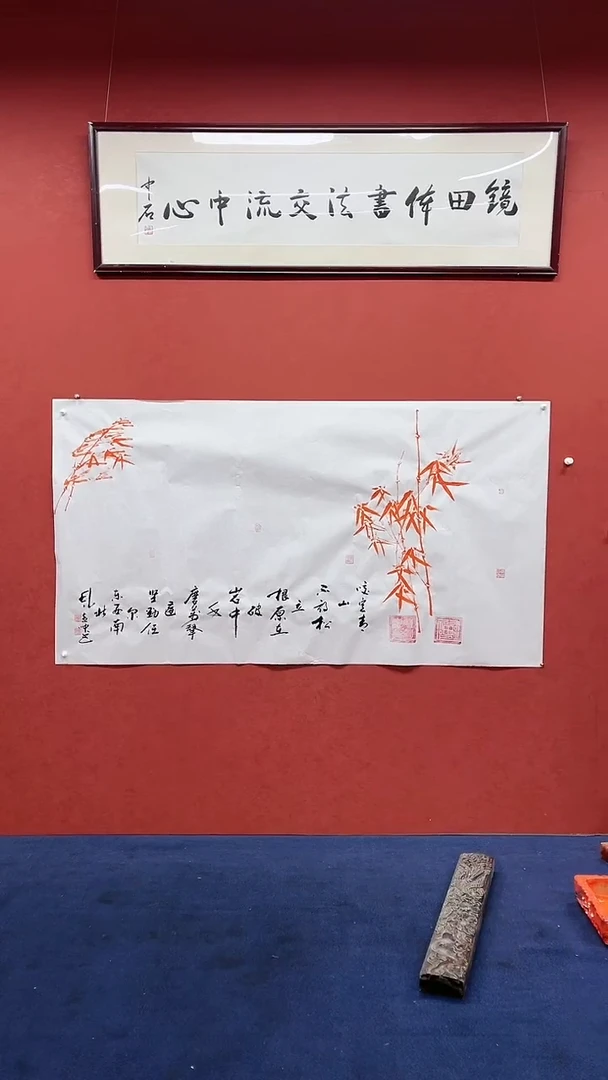 鏡田体書法交流中心
中石
咬定青
山
不放松
立
根原在
破
岩中
千
磨萬擊
还
坚劲任
尔
东西南
北
風